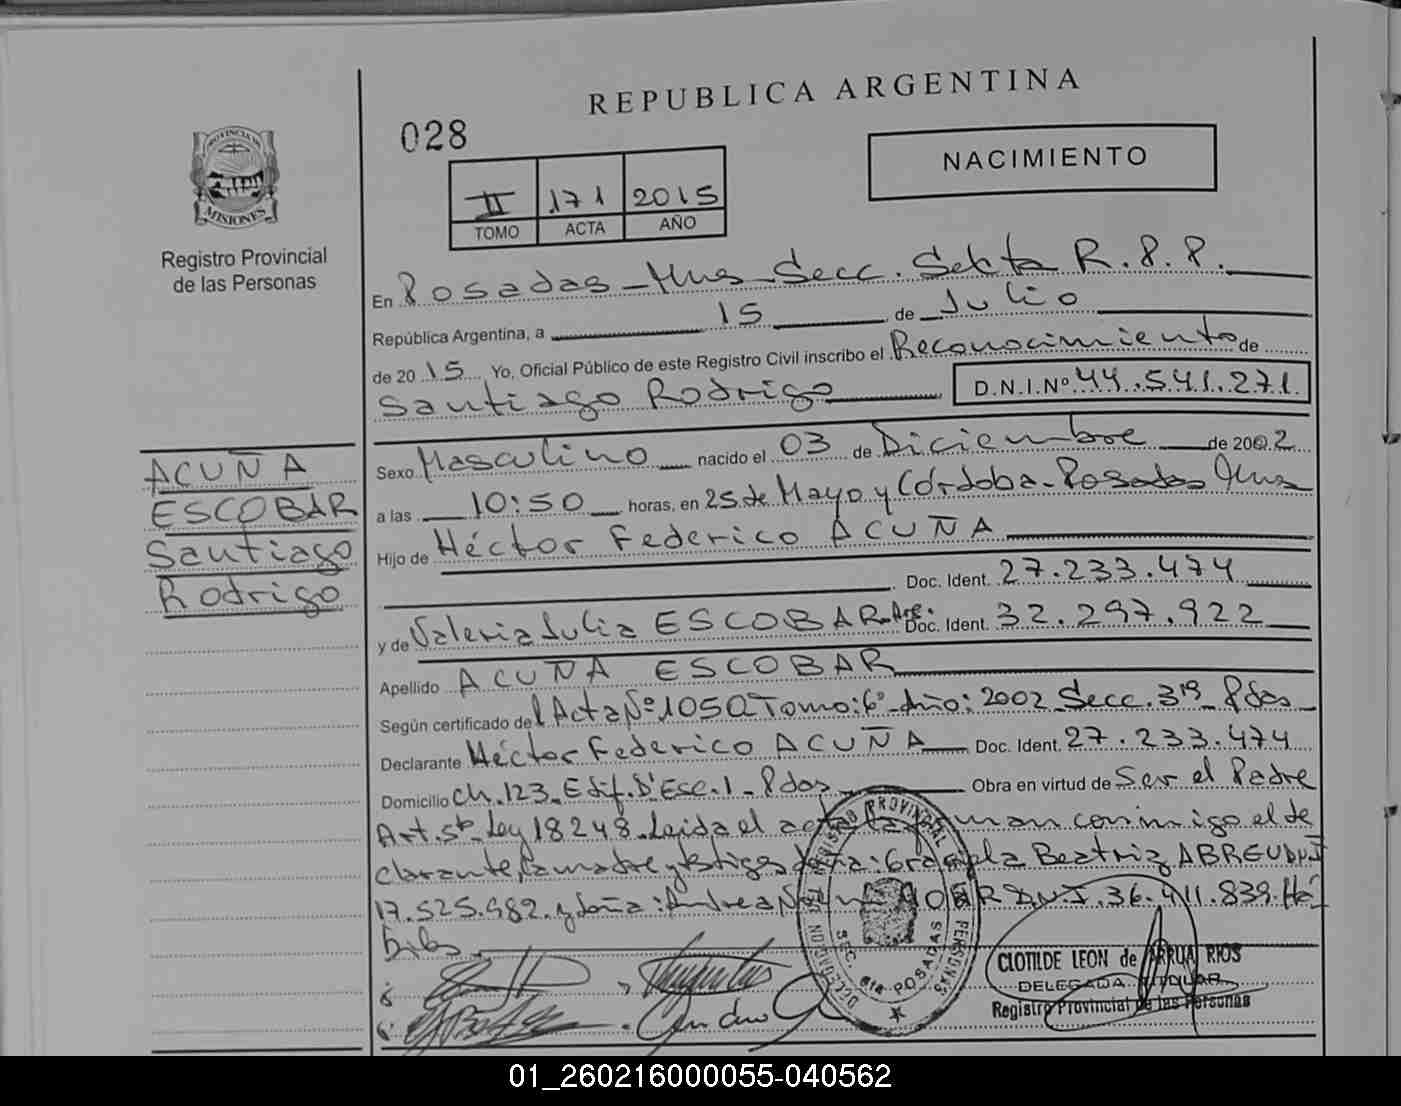 REPUBLICA ARGENTINA
028
NACIMIENTO
II 171 2015
TOMO ACTA AÑO
PROVINCIA DE MISIONES
Registro Provincial
de las Personas
En Posadas - Mns - Secc. Sexta R.P.P.
República Argentina, a 15 de Julio
de 2015 Yo, Oficial Público de este Registro Civil inscribo el Reconocimiento de
Santiago Rodrigo D.N.I.Nº 44.541.271
ACUÑA
ESCOBAR
Santiago
Rodrigo
Sexo Masculino nacido el 03 de Diciembre de 2002
a las 10:50 horas, en 25 de Mayo y Córdoba - Posadas Mns
Hijo de Héctor Federico ACUÑA
Doc. Ident. 27.233.474
y de Valeria Julia ESCOBAR - Arg. Doc. Ident. 32.297.922
Apellido ACUÑA ESCOBAR
Según certificado del Acta Nº 1050 Tomo: 6º Año: 2002 Secc. 3ra Pdas
Declarante Héctor Federico ACUÑA Doc. Ident. 27.233.474
Domicilio Ch. 123 - Edif. D' Esc. 1 - Pdas Obra en virtud de Ser el Padre
Art. 5to Ley 18248. Leida el acta la firman conmigo el de
clarante, la madre y testigos doña: Graciela Beatriz ABREU D.N.I
17.525.982 y doña: Andrea D.N.I. 36.411.839. Há
biles
REGISTRO PROVINCIAL DE LAS PERSONAS
DELEGACION
SEC. 6ta POSADAS
CLOTILDE LEON de ARRUA RIOS
DELEGADA TITULAR
Registro Provincial de las Personas
01_260216000055-040562